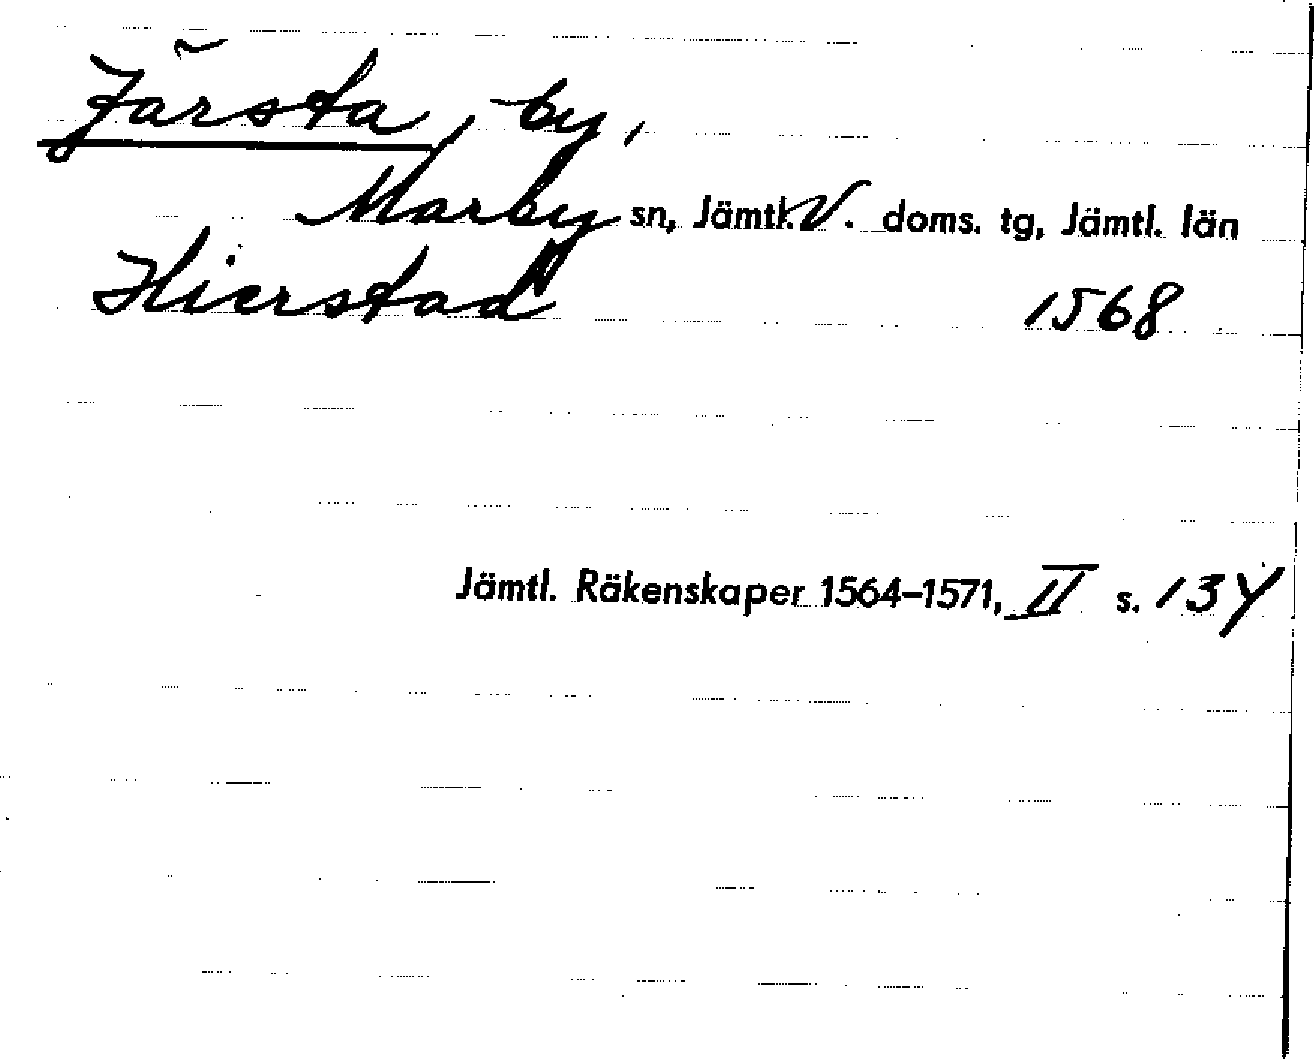 Järsta, by,
Marby sn, Jämtl. V. doms. tg, Jämtl. län
Hierstad 1568
Jämtl. Räkenskaper 1564–1571, II s.